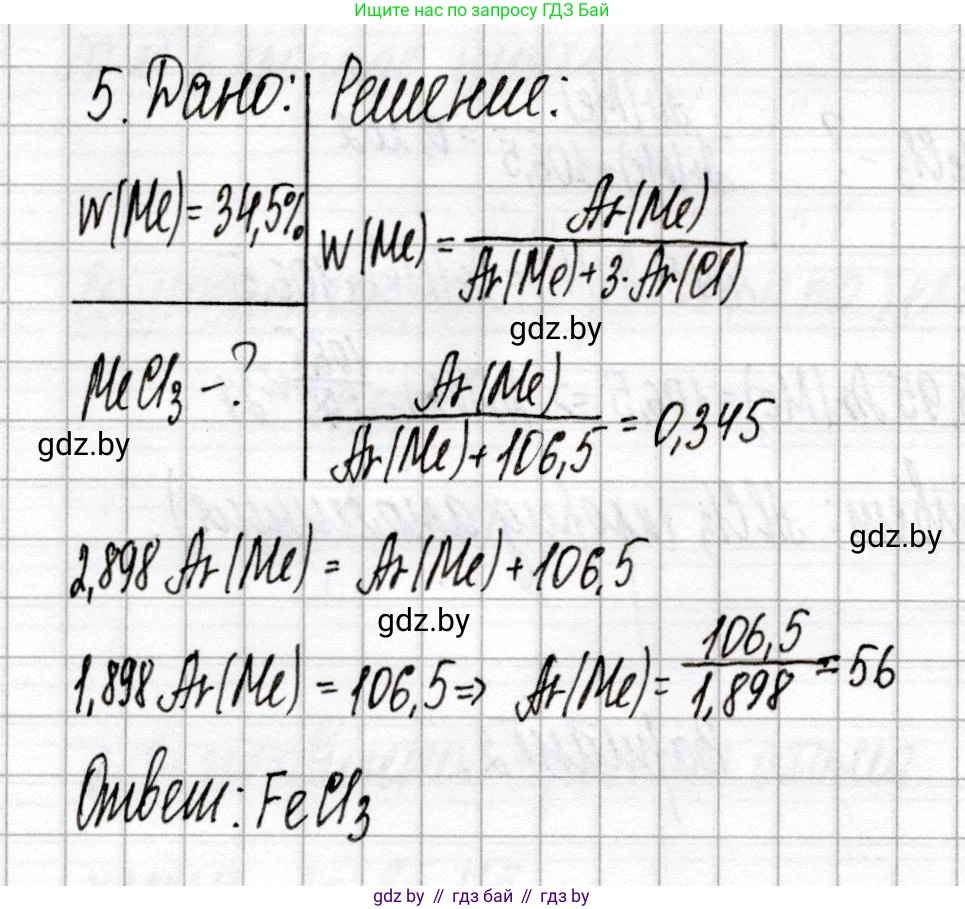 Ищите нас по запросу ГДЗ Бай
5. Дано: Решение:
w(Me) = 34,5%
w(Me) = Ar(Me) / Ar(Me) + 3·Ar(Cl)
gdz.by
MeCl3 - ?
Ar(Me) / Ar(Me) + 106,5 = 0,345
gdz.by
gdz.by
2,898 Ar(Me) = Ar(Me) + 106,5
gdz.by
1,898 Ar(Me) = 106,5 => Ar(Me) = 106,5 / 1,898 = 56
Ответ: FeCl3
gdz.by // гдз бай // gdz.by